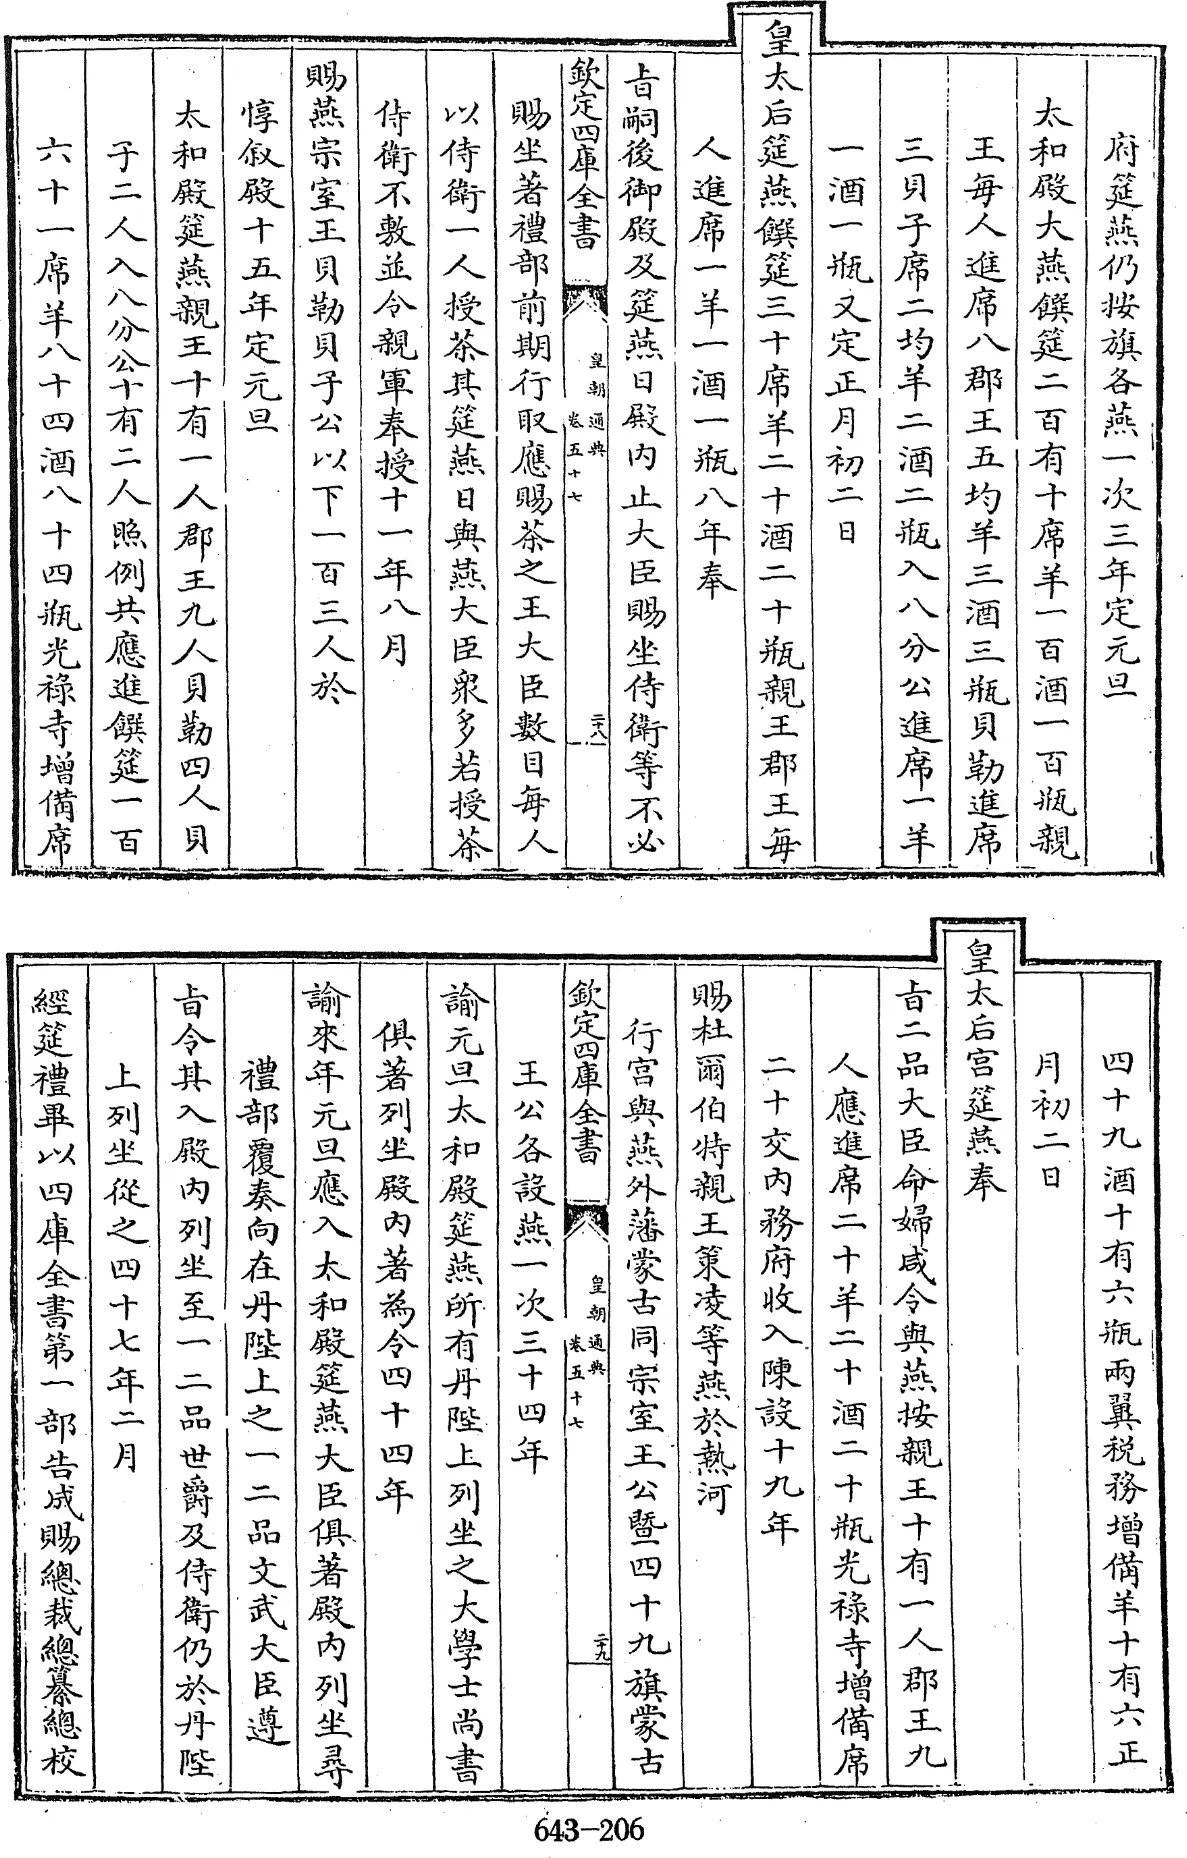 府筵燕仍按旗各燕一次三年定元旦
太和殿大燕饌筵二百有十席羊一百酒一百瓶親
王每人進席八郡王五均羊三酒三瓶貝勒進席
三貝子席二均羊二酒二瓶入八分公進席一羊
一酒一瓶又定正月初二日
皇太后筵燕饌筵三十席羊二十酒二十瓶親王郡王每
人進席一羊一酒一瓶八年奉
旨嗣後御殿及筵燕日殿内止大臣賜坐侍衛等不必
欽定四庫全書
皇朝通典
卷五十七
二十八
賜坐著禮部前期行取應賜茶之王大臣數目每人
以侍衛一人授茶其筵燕日與燕大臣衆多若授茶
侍衛不敷並令親軍奉授十一年八月
賜燕宗室王貝勒貝子公以下一百三人於
惇叙殿十五年定元旦
太和殿筵燕親王十有一人郡王九人貝勒四人貝
子二人入八分公十有二人照例共應進饌筵一百
六十一席羊八十四酒八十四瓶光祿寺增備席
四十九酒十有六瓶兩翼税務增備羊十有六正
月初二日
皇太后宫筵燕奉
旨二品大臣命婦咸令與燕按親王十有一人郡王九
人應進席二十羊二十酒二十瓶光祿寺增備席
二十交内務府收入陳設十九年
賜杜爾伯特親王策凌等燕於熱河
行宫與燕外藩蒙古同宗室王公暨四十九旗蒙古
欽定四庫全書
皇朝通典
卷五十七
二十九
王公各設燕一次三十四年
諭元旦太和殿筵燕所有丹陛上列坐之大學士尚書
俱著列坐殿内著為令四十四年
諭來年元旦應入太和殿筵燕大臣俱著殿内列坐尋
禮部覆奏向在丹陛上之一二品文武大臣遵
旨令其入殿内列坐至一二品世爵及侍衛仍於丹陛
上列坐從之四十七年二月
經筵禮畢以四庫全書第一部告成賜總裁總纂總校
643-206